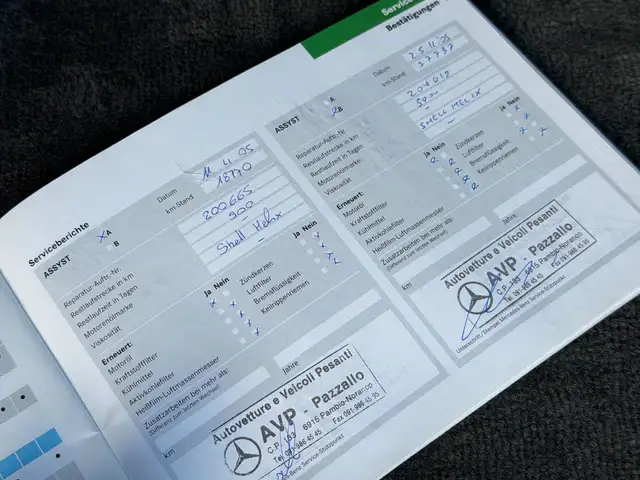 Service
Bestätigungen
Serviceberichte
ASSYST
X A
B
Datum
11.4.05
km-Stand
18770
Reparatur-Auftr.-Nr.
200665
Restlaufstrecke in km
900
Restlaufzeit in Tagen
-
Motorenölmarke
Shell Helix
Viskosität
-
Erneuert:
Ja Nein
Motoröl
Kraftstofffilter
Kühlmittel
Aktivkohlefilter
Heißfilm-Luftmassenmesser
Ja Nein
Zündkerzen
Luftfilter
Bremsflüssigkeit
Keilrippenriemen
Zusatzarbeiten bei mehr als:
(Differenz zum letzten Wechsel)
km
Jahre
Autovetture e Veicoli Pesanti
AVP - Pazzallo
C.P. 183 6915 Pambio-Noranco
Tel 091.986 45.45 Fax 091.986 45.95
-Benz Service-Stützpunkt
ASSYST
A
B
Datum
25.11.05
km-Stand
37737
Reparatur-Auftr.-Nr.
Restlaufstrecke in km
Restlaufzeit in Tagen
-
Motorenölmarke
SHELL HELIX
Viskosität
-
Erneuert:
Ja Nein
Motoröl
Kraftstofffilter
Kühlmittel
Aktivkohlefilter
Heißfilm-Luftmassenmesser
Ja Nein
Zündkerzen
Luftfilter
Bremsflüssigkeit
Keilrippenriemen
Zusatzarbeiten bei mehr als:
(Differenz zum letzten Wechsel)
km
Jahre
Autovetture e Veicoli Pesanti
AVP - Pazzallo
C.P. 183 6915 Pambio-Noranco
Unterschrift, Stempel Mercedes-Benz Service-Stützpunkt